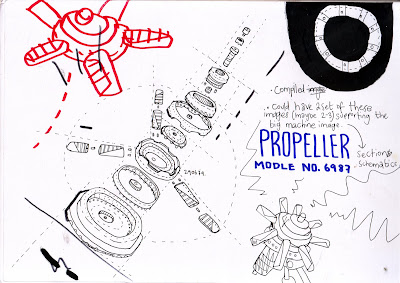 - Compiled images
• Could have 2 set of these
images (maybe 2-3) surrounding the
big machine image
PROPELLER
MODLE NO. 6987
Sections
Schematics